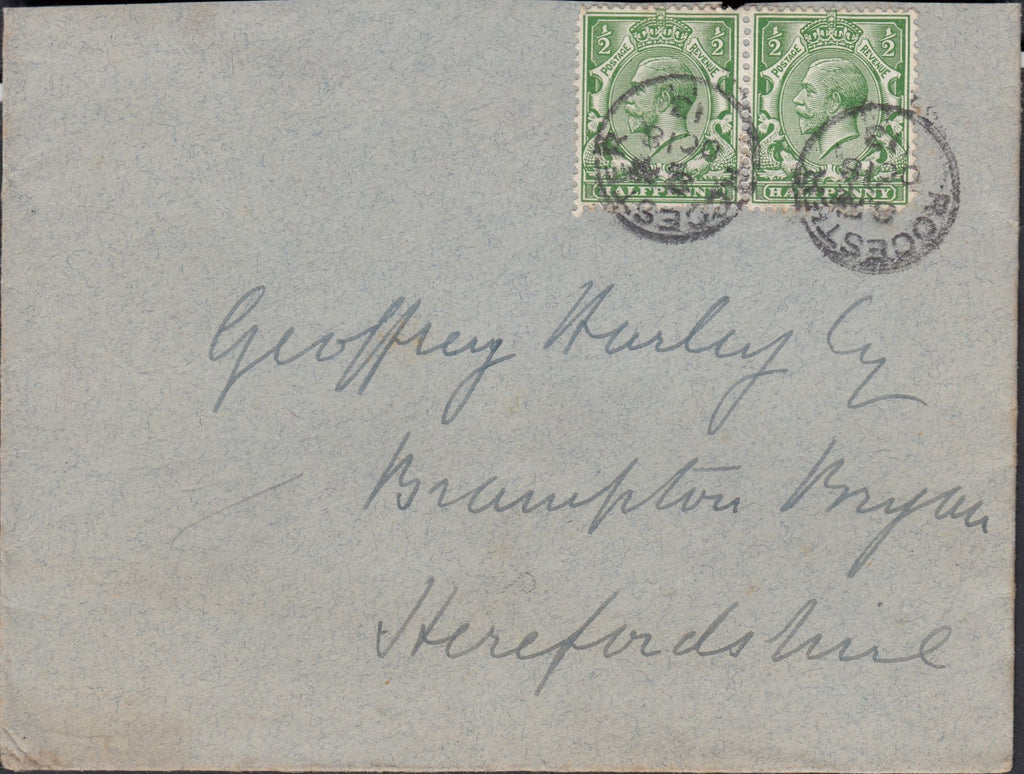 ½ ½ ½ ½
POSTAGE REVENUE POSTAGE REVENUE
HALFPENNY HALFPENNY
ROCESTER
OC 18
13
Geoffrey Harley Esq
Brampton Bryan
Herefordshire